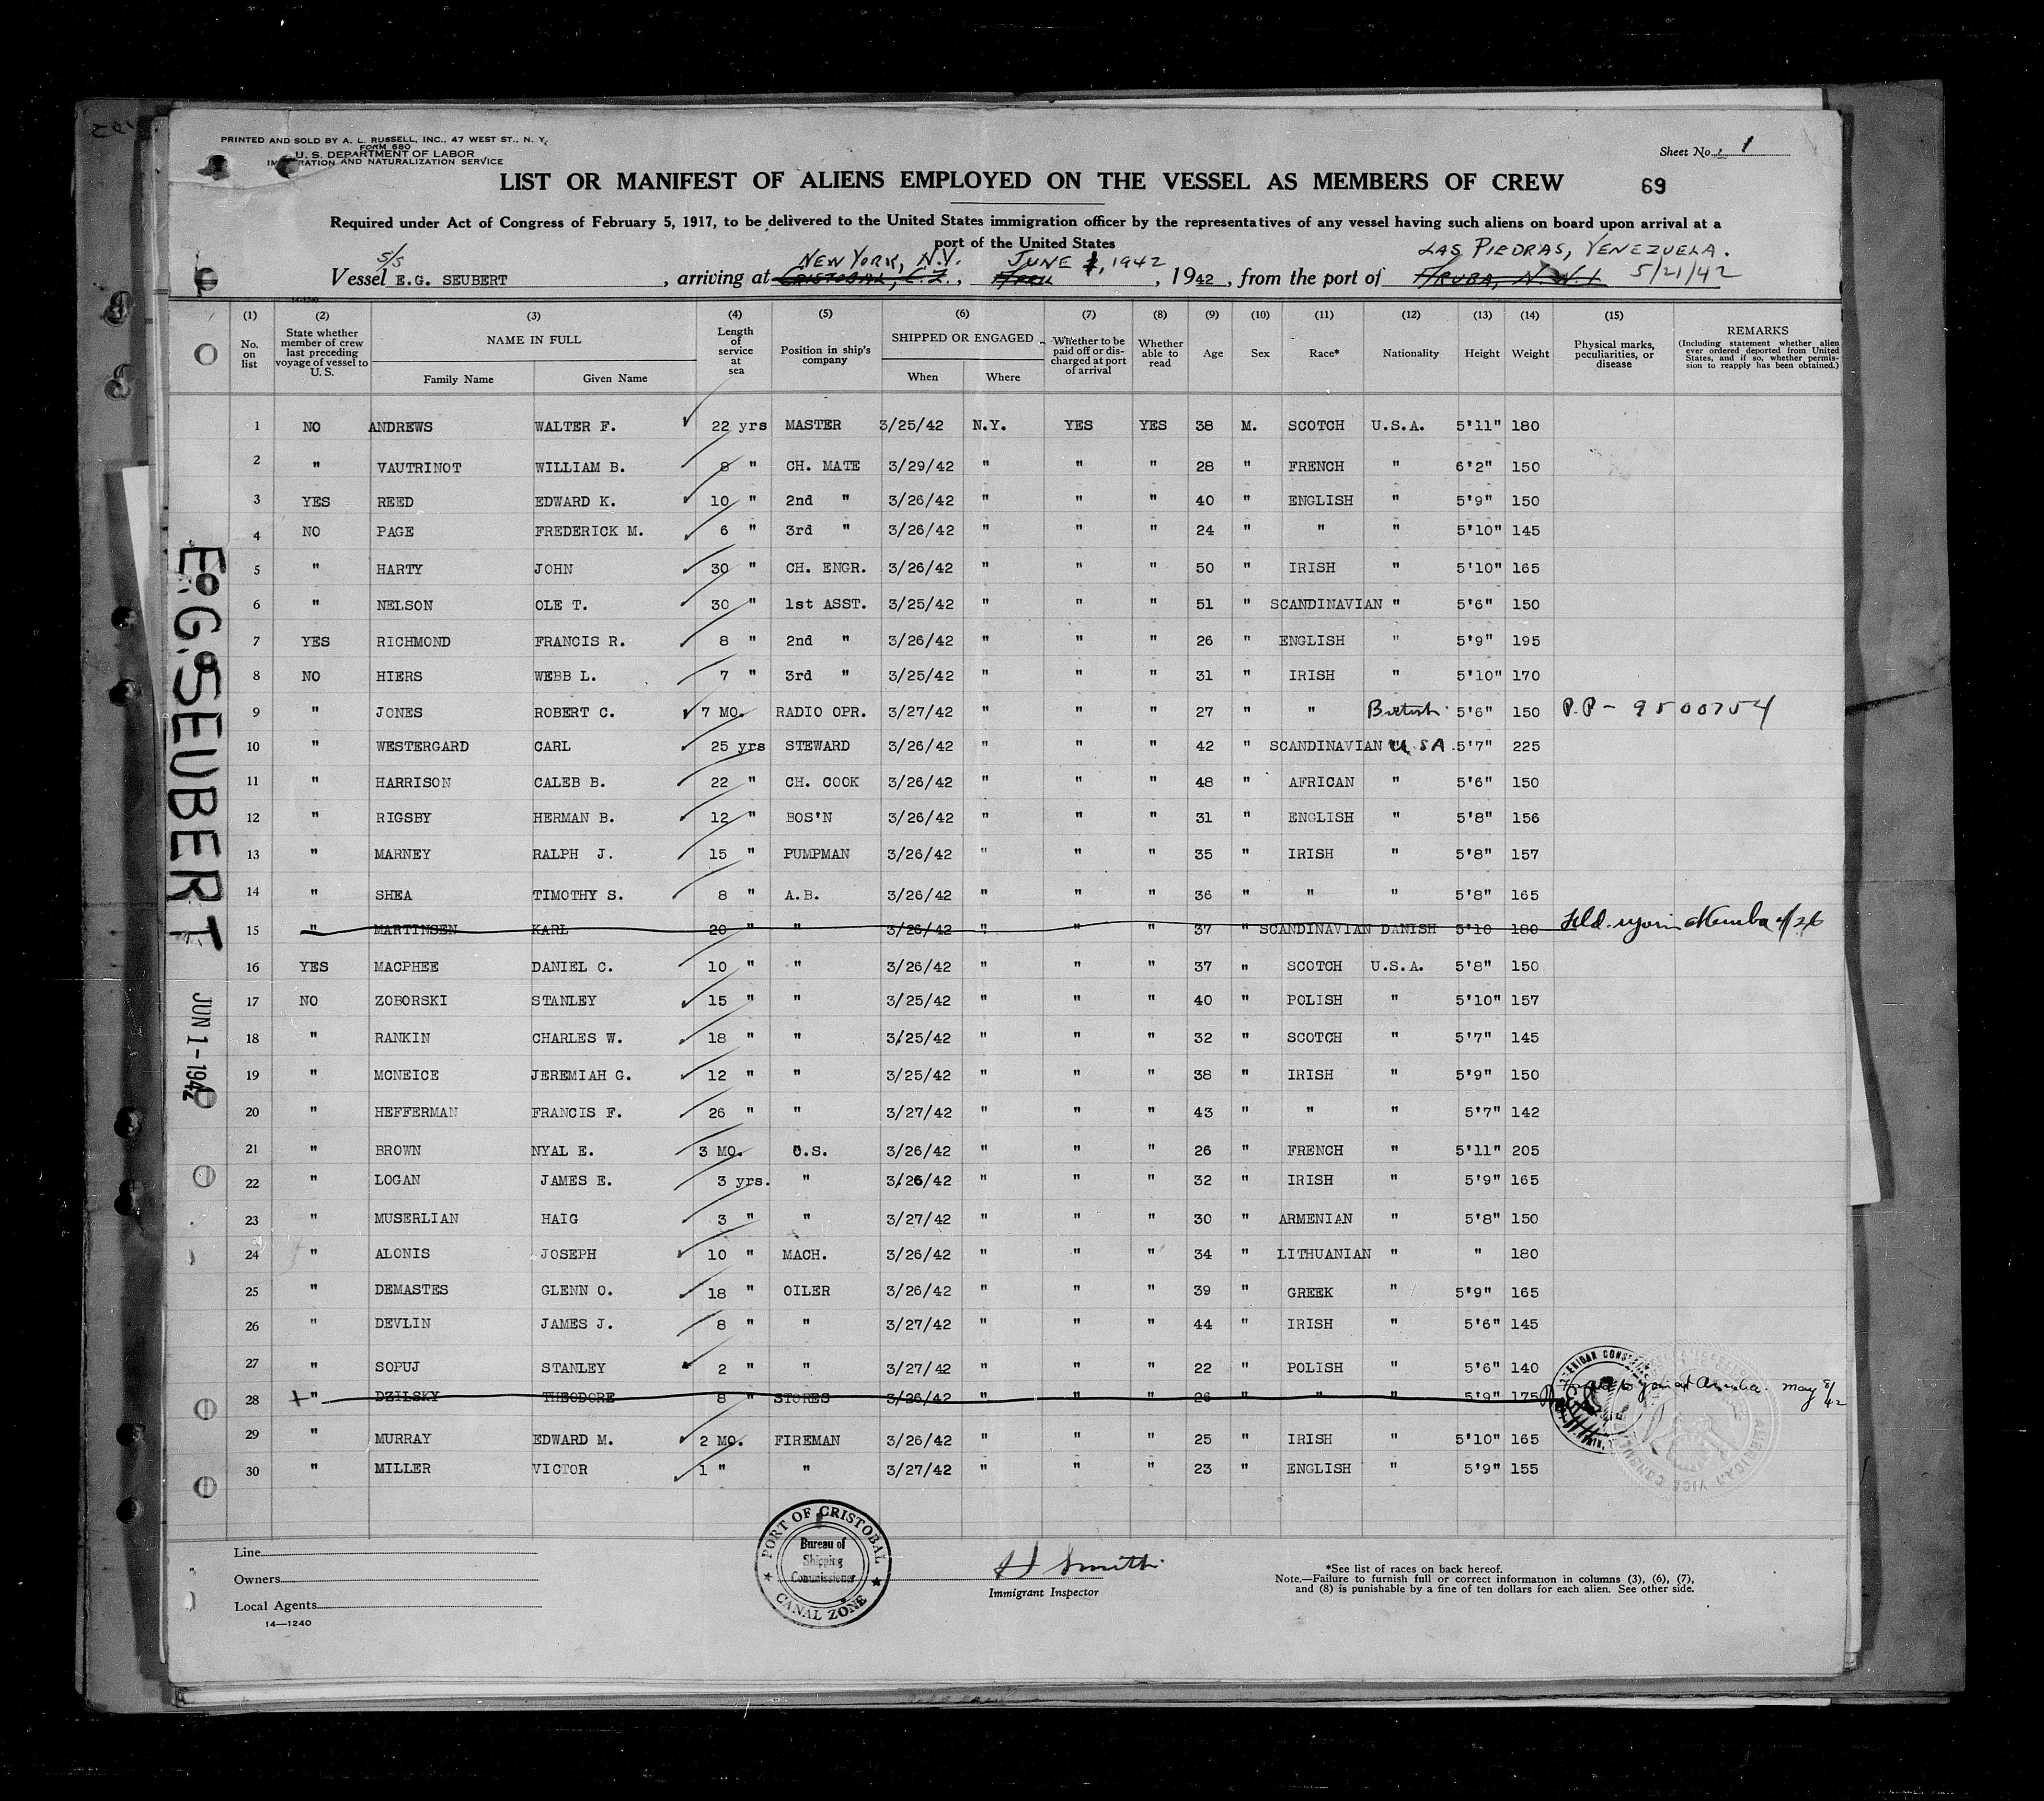 PRINTED AND SOLD BY A. L. RUSSELL, INC., 47 WEST ST., N. Y.
FORM 680
U. S. DEPARTMENT OF LABOR
IMMIGRATION AND NATURALIZATION SERVICE
Sheet No. 1
LIST OR MANIFEST OF ALIENS EMPLOYED ON THE VESSEL AS MEMBERS OF CREW 69
Required under Act of Congress of February 5, 1917, to be delivered to the United States immigration officer by the representatives of any vessel having such aliens on board upon arrival at a
port of the United States
S/S NEW YORK, N.Y. JUNE 1, 1942 LAS PIEDRAS, VENEZUELA.
Vessel E.G. SEUBERT, arriving at CRISTOBAL, C.Z., APRIL, 1942, from the port of ARUBA, N.W.I. 5/21/42
14-1240
(1) (2) (3) (4) (5) (6) (7) (8) (9) (10) (11) (12) (13) (14) (15)
No. on list State whether member of crew last preceding voyage of vessel to U. S. NAME IN FULL Family Name Given Name Length of service at sea Position in ship's company SHIPPED OR ENGAGED When Where Whether to be paid off or discharged at port of arrival Whether able to read Age Sex Race* Nationality Height Weight Physical marks, peculiarities, or disease REMARKS (Including statement whether alien ever ordered deported from United States, and if so, whether permission to reapply has been obtained.)
1 NO ANDREWS WALTER F. 22 yrs MASTER 3/25/42 N.Y. YES YES 38 M. SCOTCH U.S.A. 5'11" 180
2 " VAUTRINOT WILLIAM B. 8 " CH. MATE 3/29/42 " " " 28 " FRENCH " 6'2" 150
3 YES REED EDWARD K. 10 " 2nd " 3/26/42 " " " 40 " ENGLISH " 5'9" 150
4 NO PAGE FREDERICK M. 6 " 3rd " 3/26/42 " " " 24 " " " 5'10" 145
5 " HARTY JOHN 30 " CH. ENGR. 3/26/42 " " " 50 " IRISH " 5'10" 165
6 " NELSON OLE T. 30 " 1st ASST. 3/25/42 " " " 51 " SCANDINAVIAN " 5'6" 150
7 YES RICHMOND FRANCIS R. 8 " 2nd " 3/26/42 " " " 26 " ENGLISH " 5'9" 195
8 NO HIERS WEBB L. 7 " 3rd " 3/25/42 " " " 31 " IRISH " 5'10" 170
9 " JONES ROBERT C. 7 MO. RADIO OPR. 3/27/42 " " " 27 " " British 5'6" 150 P.P - 9500754
10 " WESTERGARD CARL 25 yrs STEWARD 3/26/42 " " " 42 " SCANDINAVIAN U.S.A. 5'7" 225
11 " HARRISON CALEB B. 22 " CH. COOK 3/26/42 " " " 48 " AFRICAN " 5'6" 150
12 " RIGSBY HERMAN B. 12 " BOS'N 3/26/42 " " " 31 " ENGLISH " 5'8" 156
13 " MARNEY RALPH J. 15 " PUMPMAN 3/26/42 " " " 35 " IRISH " 5'8" 157
14 " SHEA TIMOTHY S. 8 " A.B. 3/26/42 " " " 36 " " " 5'8" 165
15 " MARTINSEN KARL 20 " " 3/26/42 " " " 37 " SCANDINAVIAN DANISH 5'10 180 4/26
16 YES MACPHEE DANIEL C. 10 " " 3/26/42 " " " 37 " SCOTCH U.S.A. 5'8" 150
17 NO ZOBORSKI STANLEY 15 " " 3/25/42 " " " 40 " POLISH " 5'10" 157
18 " RANKIN CHARLES W. 18 " " 3/25/42 " " " 32 " SCOTCH " 5'7" 145
19 " MCNEICE JEREMIAH G. 12 " " 3/25/42 " " " 38 " IRISH " 5'9" 150
20 " HEFFERMAN FRANCIS F. 26 " " 3/27/42 " " " 43 " " " 5'7" 142
21 " BROWN NYAL E. 3 MO. O.S. 3/26/42 " " " 26 " FRENCH " 5'11" 205
22 " LOGAN JAMES E. 3 yrs. " 3/26/42 " " " 32 " IRISH " 5'9" 165
23 " MUSERLIAN HAIG 3 " " 3/27/42 " " " 30 " ARMENIAN " 5'8" 150
24 " ALONIS JOSEPH 10 " MACH. 3/26/42 " " " 34 " LITHUANIAN " " 180
25 " DEMASTES GLENN O. 18 " OILER 3/26/42 " " " 39 " GREEK " 5'9" 165
26 " DEVLIN JAMES J. 8 " " 3/27/42 " " " 44 " IRISH " 5'6" 145
27 " SOPUJ STANLEY 2 " " 3/27/42 " " " 22 " POLISH " 5'6" 140
28 + " DZILSKY THEODORE 8 " STORES 3/26/42 " " " 26 " " " 5'9" 175 to join at Aruba. May 8/42
29 " MURRAY EDWARD M. 2 MO. FIREMAN 3/26/42 " " " 25 " IRISH " 5'10" 165
30 " MILLER VICTOR 1 " " 3/27/42 " " " 23 " ENGLISH " 5'9" 155
E.G. SEUBERT
JUN 1-1942
Line
Owners
Local Agents
14—1240
PORT OF CRISTOBAL
Bureau of
Shipping
Commissioner
CANAL ZONE
H Smith
Immigrant Inspector
*See list of races on back hereof.
Note.—Failure to furnish full or correct information in columns (3), (6), (7),
and (8) is punishable by a fine of ten dollars for each alien. See other side.
AMERICAN VICE CONSULATE